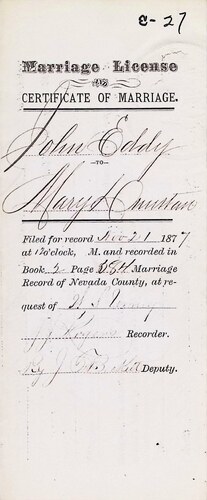 C-27
Marriage License
AND
CERTIFICATE OF MARRIAGE.
John Eddy
—TO—
Mary
Filed for record Nov 21 1877
at 12 o'clock, M. and recorded in
Book 2 Page 284 Marriage
Record of Nevada County, at re-
quest of
Recorder.
By J Deputy.